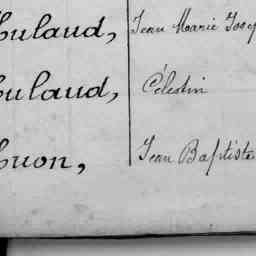 Hulaud, Jean Marie Josep
Hulaud, Célestin
Huon, Jean Baptiste